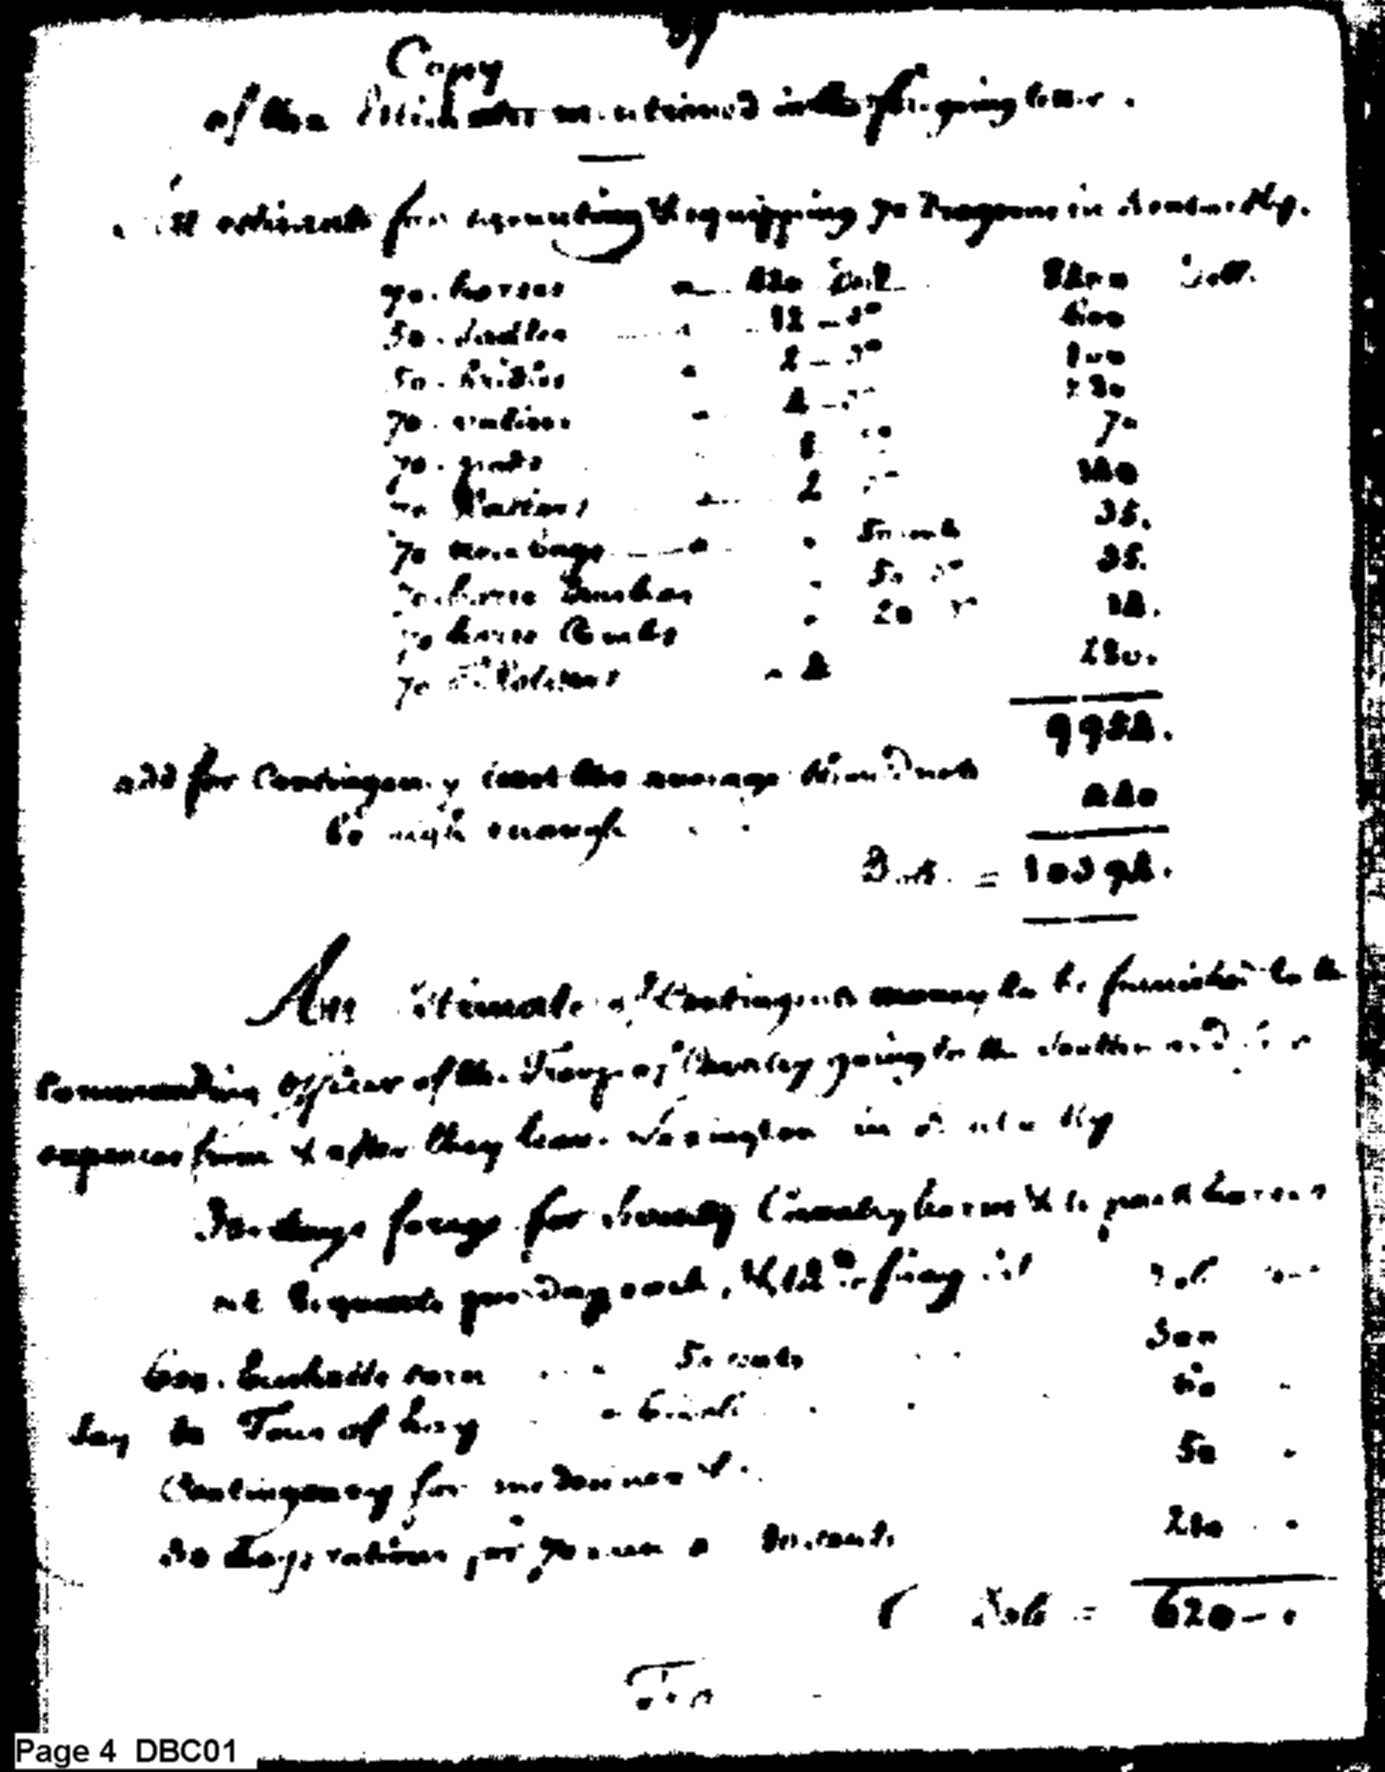 Copy
of the Estimates mentioned in the foregoing letter.
estimate for mounting & equipping 70 Dragoons in Kentucky.
70. horses a 120 Dol. 8400 Doll.
50. Saddles a 12 - do 600
50. bridles a 2 - do 100
70. valises a 4 - do 280
70. 1 do 70
70 2 do 140
70 nose bags a 50 cents 35.
70 horse brushes 50 do 35.
70 horse Combs 20 do 14.
70 a 4 280.
9954.
add for Contingency lest the average should not
be high enough 440
Dols. = 10394.
An Estimate of Contingent money to be furnished to the
Commanding Officer of the Troop of Cavalry going to the Southward for
expences from & after they leave Lexington in Kentucky
30 days forage for Seventy Cavalry horses & 10 pack horses
at 8 quarts per day each, & 12 lb Dol. cents
600. bushells corn a 50 cents 300
Say 10 Tons of hay a 6 60 -
Contingency for medicines &. 50 -
30 days rations for 70 men a 10. cents 210 -
Dols = 620 - .
Page 4 DBC01